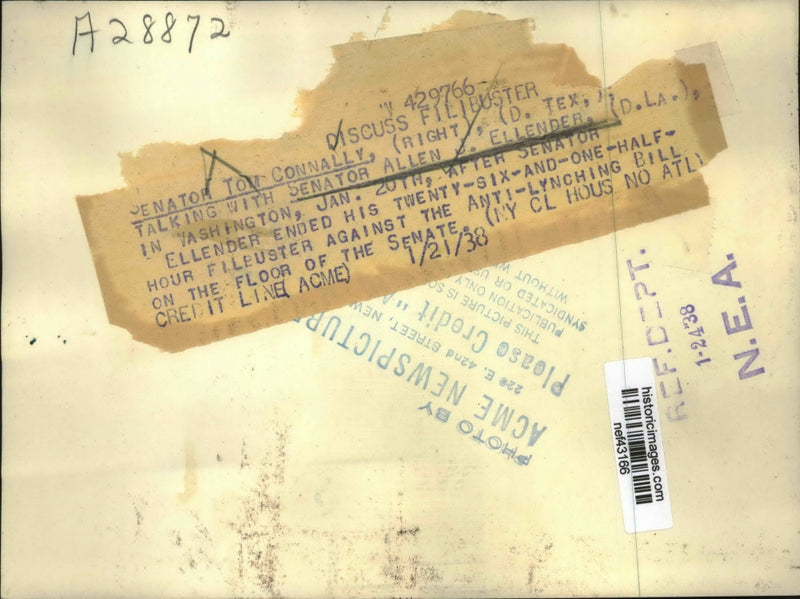 A28872
429766
DISCUSS FILIBUSTER
SENATOR TOM CONNALLY, (RIGHT), (D. TEX,),
TALKING WITH SENATOR ALLEN J. ELLENDER, (D.LA.),
IN WASHINGTON, JAN. 20TH, AFTER SENATOR
ELLENDER ENDED HIS TWENTY-SIX-AND-ONE-HALF-
HOUR FILBUSTER AGAINST THE ANTI-LYNCHING BILL
ON THE FLOOR OF THE SENATE. (NY CL HOUS NO ATL)
CREDIT LINE( ACME) 1/21/38
PHOTO BY
ACME NEWSPICTURE
220 E. 42nd STREET, NEW
Please Credit "A
THIS PICTURE IS SO
PUBLICATION ONLY
SYNDICATED OR US
WITHOUT
REF. DEPT.
1-24-38
N.E.A.
historicimages.com
nef43166